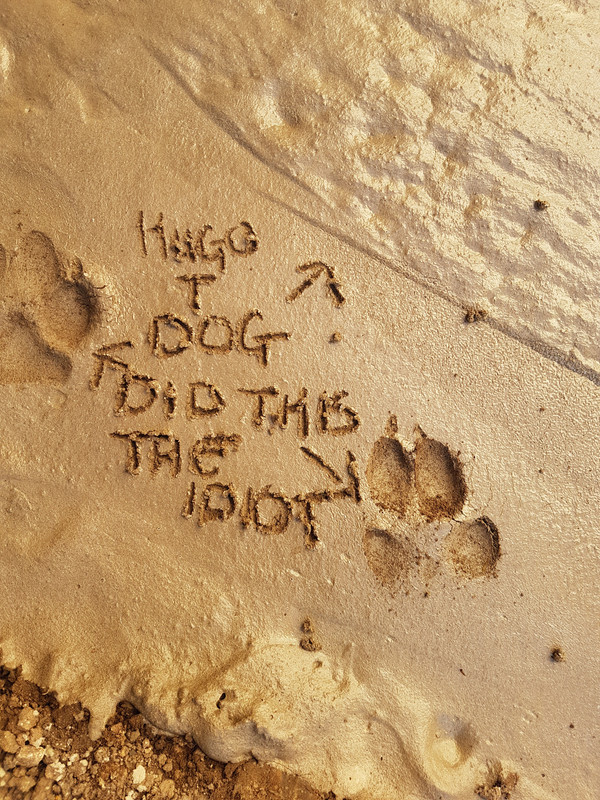 HUGO
T
DOG
DID THIS
THE
IDIOT